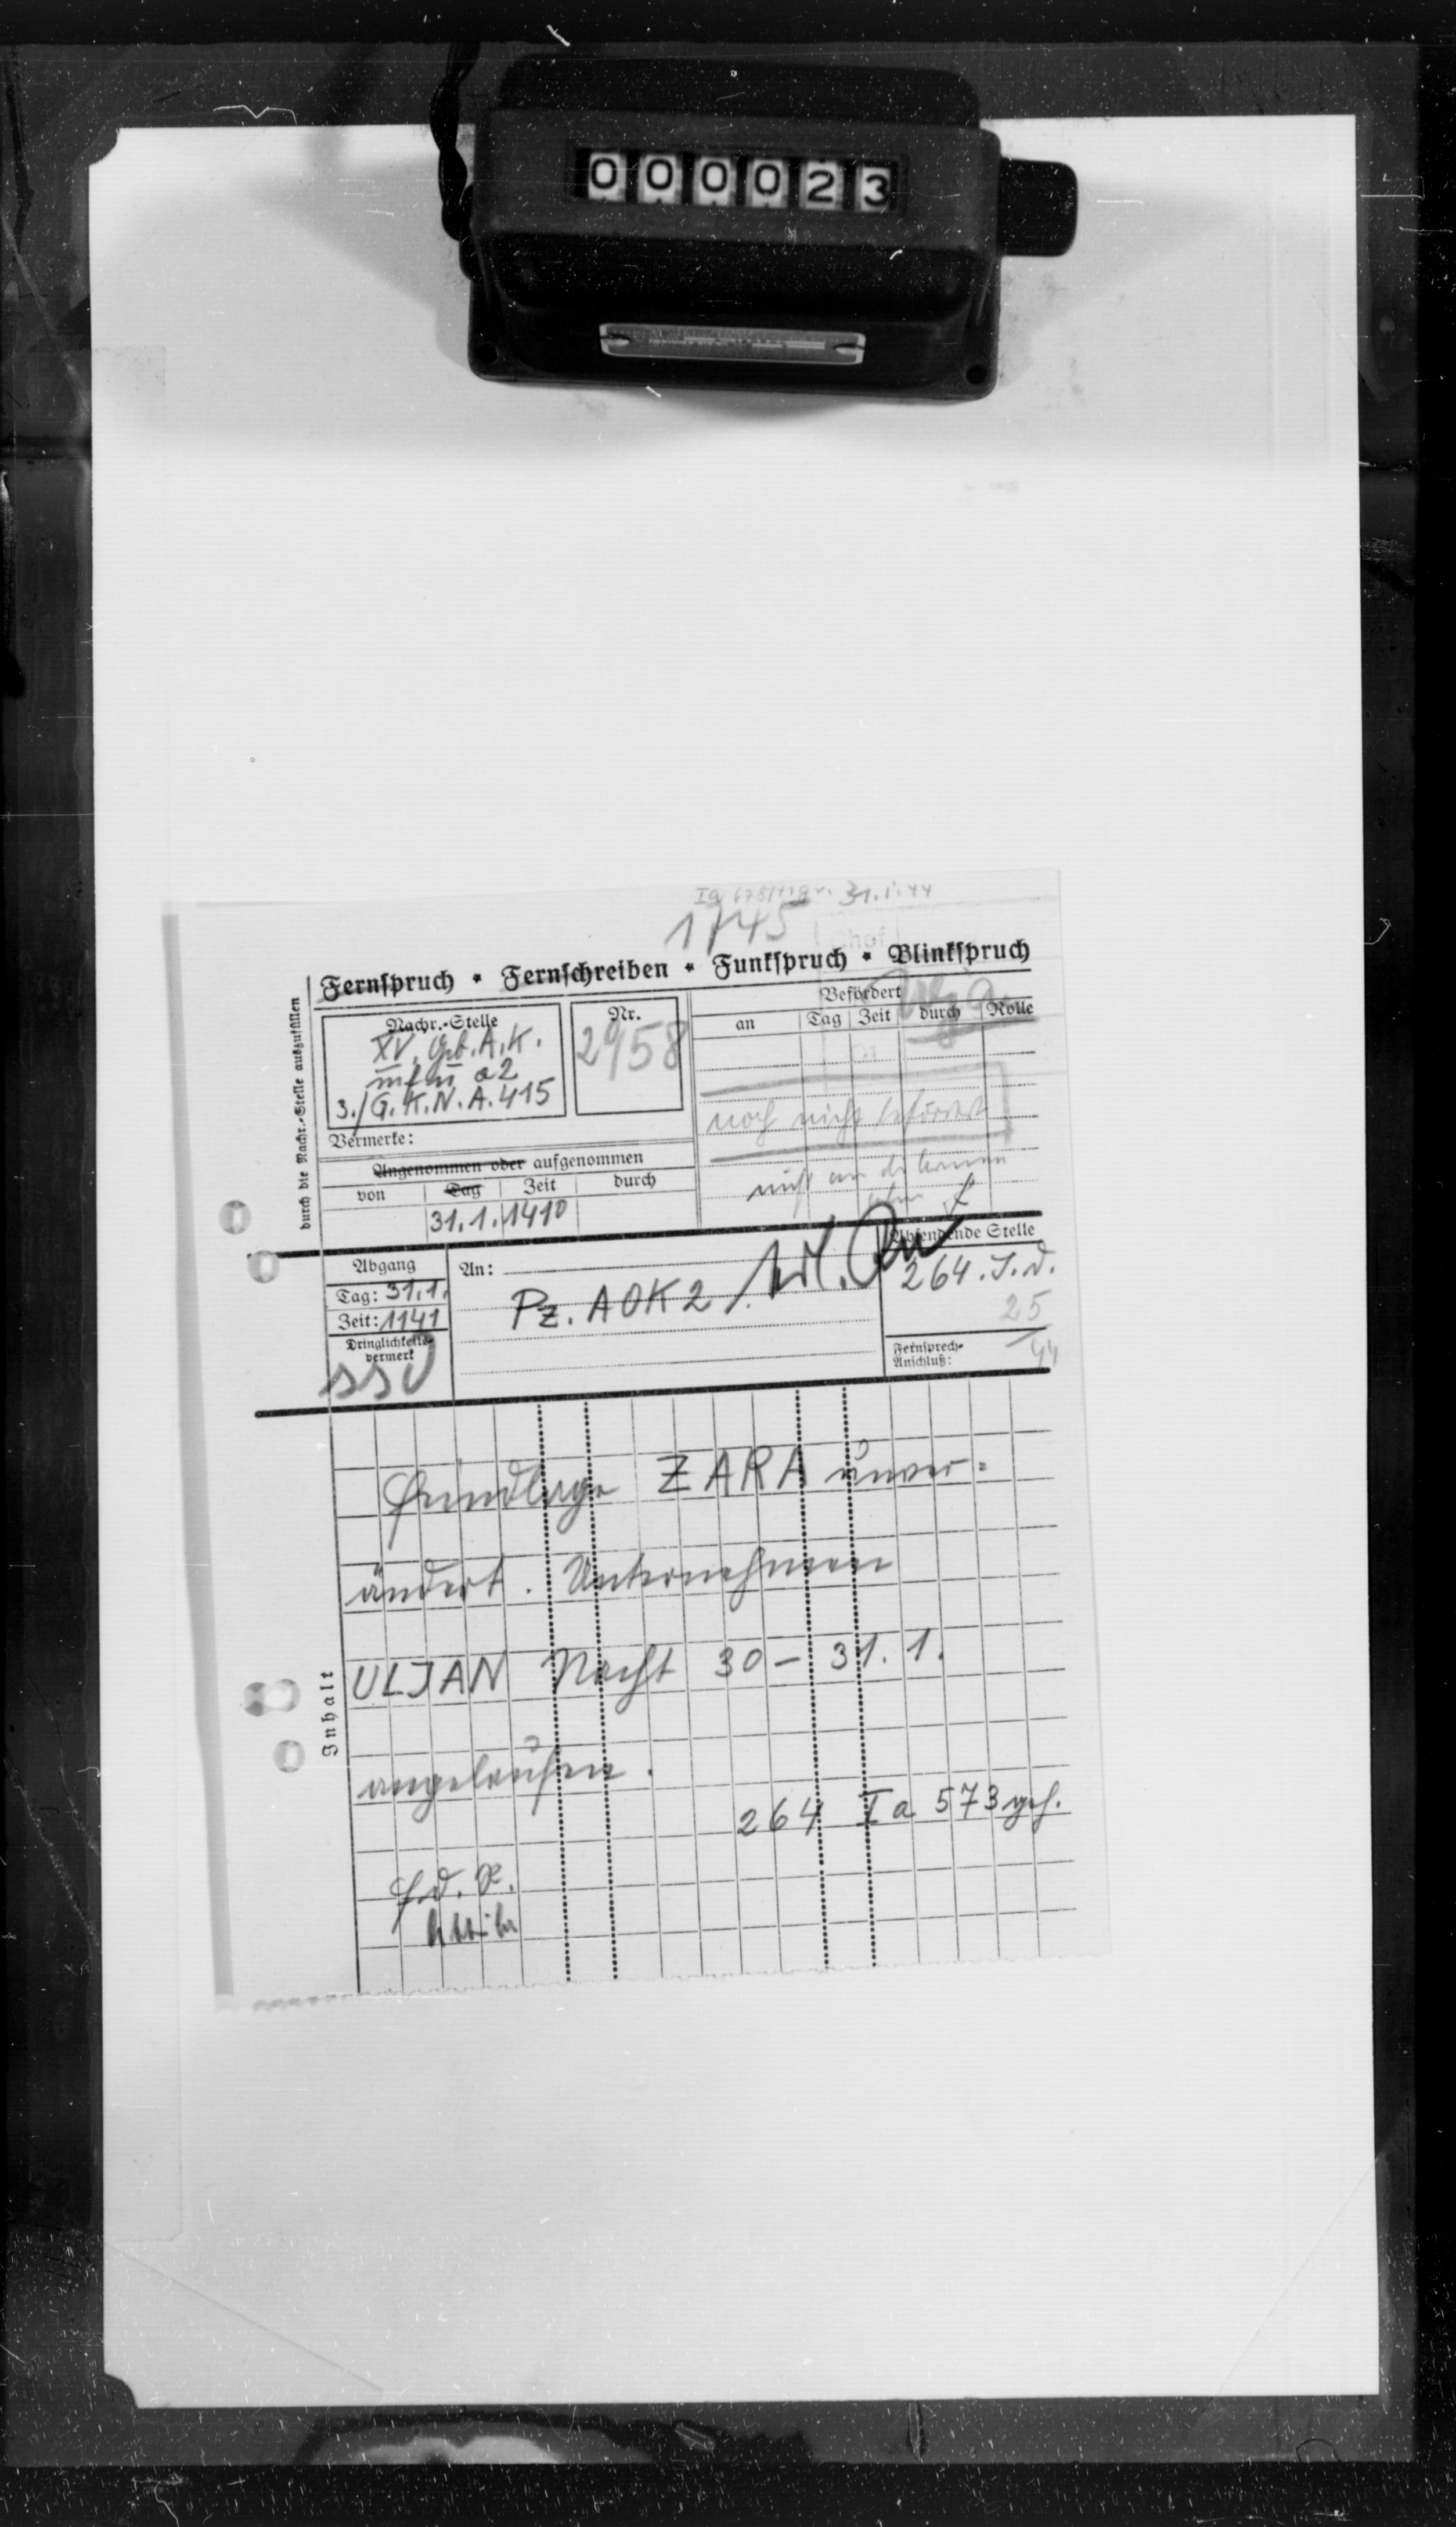 000023
31.1.44
1745
Fernspruch • Fernschreiben • Funkspruch • Blinkspruch
durch die Nachr.-Stelle auszufüllen
Nachr.-Stelle
XV. Geb.A.K.
3./G.K.N.A.415
Nr.
2958
Befördert
an Tag Zeit durch Rolle
noch nicht befördert
Vermerke:
Angenommen oder aufgenommen
von Tag Zeit durch
31.1. 1410
Abgang
Tag: 31.1.
Zeit: 1141
Dringlichkeits-
vermerk
SSD
An:
Pz. AOK 2
Absendende Stelle
264. I.D.
25
44
Fernsprech-
Anschluß:
Inhalt
Grundlage ZARA unver=
ändert. Unternehmen
ULJAN Nacht 30 – 31. 1.
angelaufen.
264 Ia 573 geh.
F.d.R.